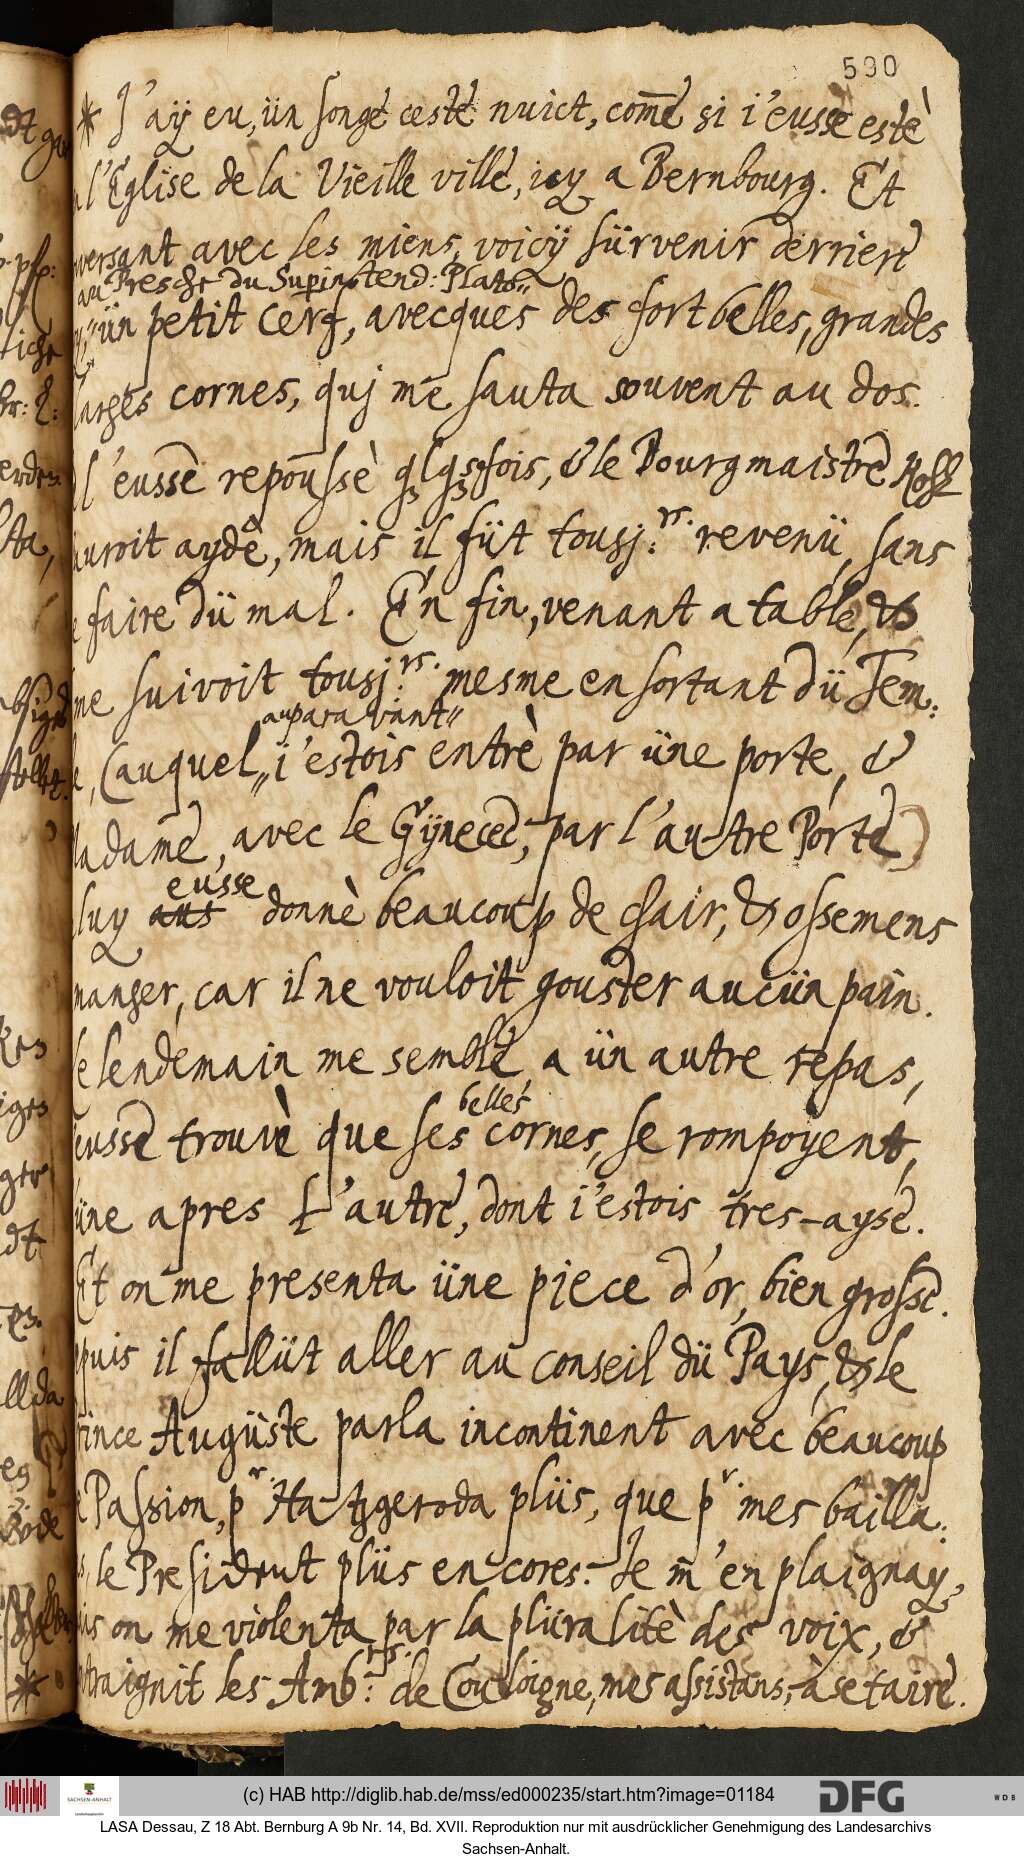 590
* J'aÿ eu, ün songe ceste nuict, com̄e si i'eusse estè
l'Eglise de la Vieille ville, icy a Bernbourg. Et
versant avec les miens, voicÿ sürvenir derriere
au Presche du Supintend: Plato"
ün petit cerf, avecques des fort belles, grandes
larges cornes, quj me sauta souvent au dos.
l'eusse repoussè qlqsfois, & le Bourgmaistre Rost
auroit aydè, mais il füt tousj:rs. revenü, sans
faire dü mal. En fin, venant a table, &
me suivoit tousj:rs. mesme en sortant dü Tem:
auparavant"
(auquel" i'estois entrè par üne porte, &
adame, avec le Gÿnecee, par l'autre Porte)
eusse
luy donnè beaucoup de chair, & ossemens
manger, car il ne vouloit gouster aucün pain.
le lendemain me semble a ün autre repas,
belles
eusse trouvè que ses cornes, se rompoyent,
üne apres L'autre, dont i'estois tres-ayse.
Et on me presenta üne piece d'or, bien grosse.
puis il fallüt aller au conseil dü Pays, & le
Prince Augüste parla incontinent avec beaucoup
Passion, pr. Hatzgeroda plüs, que pr. mes bailla:
le President plüs encores. Je m'en plaignay,
on me violenta par la plüralitè des voix, &
traignit les Amb:rs. de Couloigne, mes assistans, à se taire.
(c) HAB http://diglib.hab.de/mss/ed000235/start.htm?image=01184
SACHSEN-ANHALT
DFG
WDB
LASA Dessau, Z 18 Abt. Bernburg A 9b Nr. 14, Bd. XVII. Reproduktion nur mit ausdrücklicher Genehmigung des Landesarchivs
Sachsen-Anhalt.